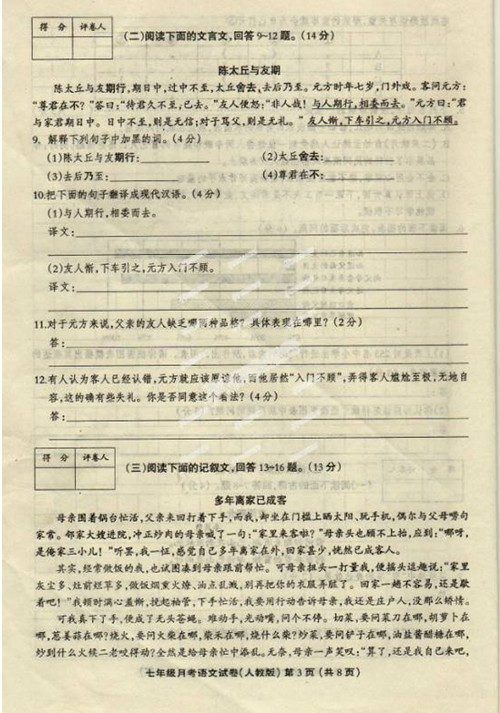 得 分 评卷人
(二)阅读下面的文言文,回答9~12题。(14分)
陈太丘与友期
陈太丘与友期行,期日中,过中不至,太丘舍去,去后乃至。元方时年七岁,门外戏。客问元方:
“尊君在不?”答曰:“待君久不至,已去。”友人便怒:“非人哉!与人期行,相委而去。”元方曰:“君
与家君期日中。日中不至,则是无信;对子骂父,则是无礼。”友人惭,下车引之,元方入门不顾。
9. 解释下列句子中加黑的词。(4分)
(1)陈太丘与友期行: (2)太丘舍去:
(3)去后乃至: (4)尊君在不:
10.把下面的句子翻译成现代汉语。(4分)
(1)与人期行,相委而去。
译文:
(2)友人惭,下车引之,元方入门不顾。
译文:
11.对于元方来说,父亲的友人缺乏哪两种品格?具体表现在哪里?(2分)
答:
12.有人认为客人已经认错,元方就应该原谅他,而他居然“入门不顾”,弄得客人尴尬至极,无地自
容,这的确有些失礼。你是否同意这个看法?(4分)
答:
得 分 评卷人
(三)阅读下面的记叙文,回答13~16题。(13分)
多年离家已成客
母亲围着锅台忙活,父亲来回打着下手,而我,却坐在门槛上晒太阳、玩手机,偶尔与父母唠句
家常。邻家大娘进院,冲正炒肉的母亲喊了一句:“家里来客啦?”母亲头也顾不上抬,应到:“哪呀,
是俺家三小儿!”听罢,我一怔,感觉自己多年离家在外,回家甚少,恍然已成客人。
其实,经常做饭的我,也试图凑到母亲跟前帮忙。可母亲扭头一打量我,便摇头这趟说:“家里
灰尘多、灶前烂草多,做饭烟熏火燎、油点乱溅,别再把你的衣服弄脏了。回家一趟不容易,还是歇
着吧!”我顿时满心羞惭,挽起袖管,下手忙活,我要用行动告诉母亲,我还是庄户人,没那么娇情。
可我真下了手,便成了无头苍蝇。难动手,光动嘴,问个不停。切菜,要问菜刀在哪,胡萝卜在
哪,葱姜蒜在哪?烧火,要问火柴在哪,柴禾在哪,烧什么柴?炒菜,要问铲子在哪,油盐酱醋糖在哪,
炒到什么火候二老咬得动?全然是给母亲忙中添乱。无奈,母亲一声笑叹:“算了,还是我自己来吧,
七年级月考语文试卷(人教版) 第3页(共8页)